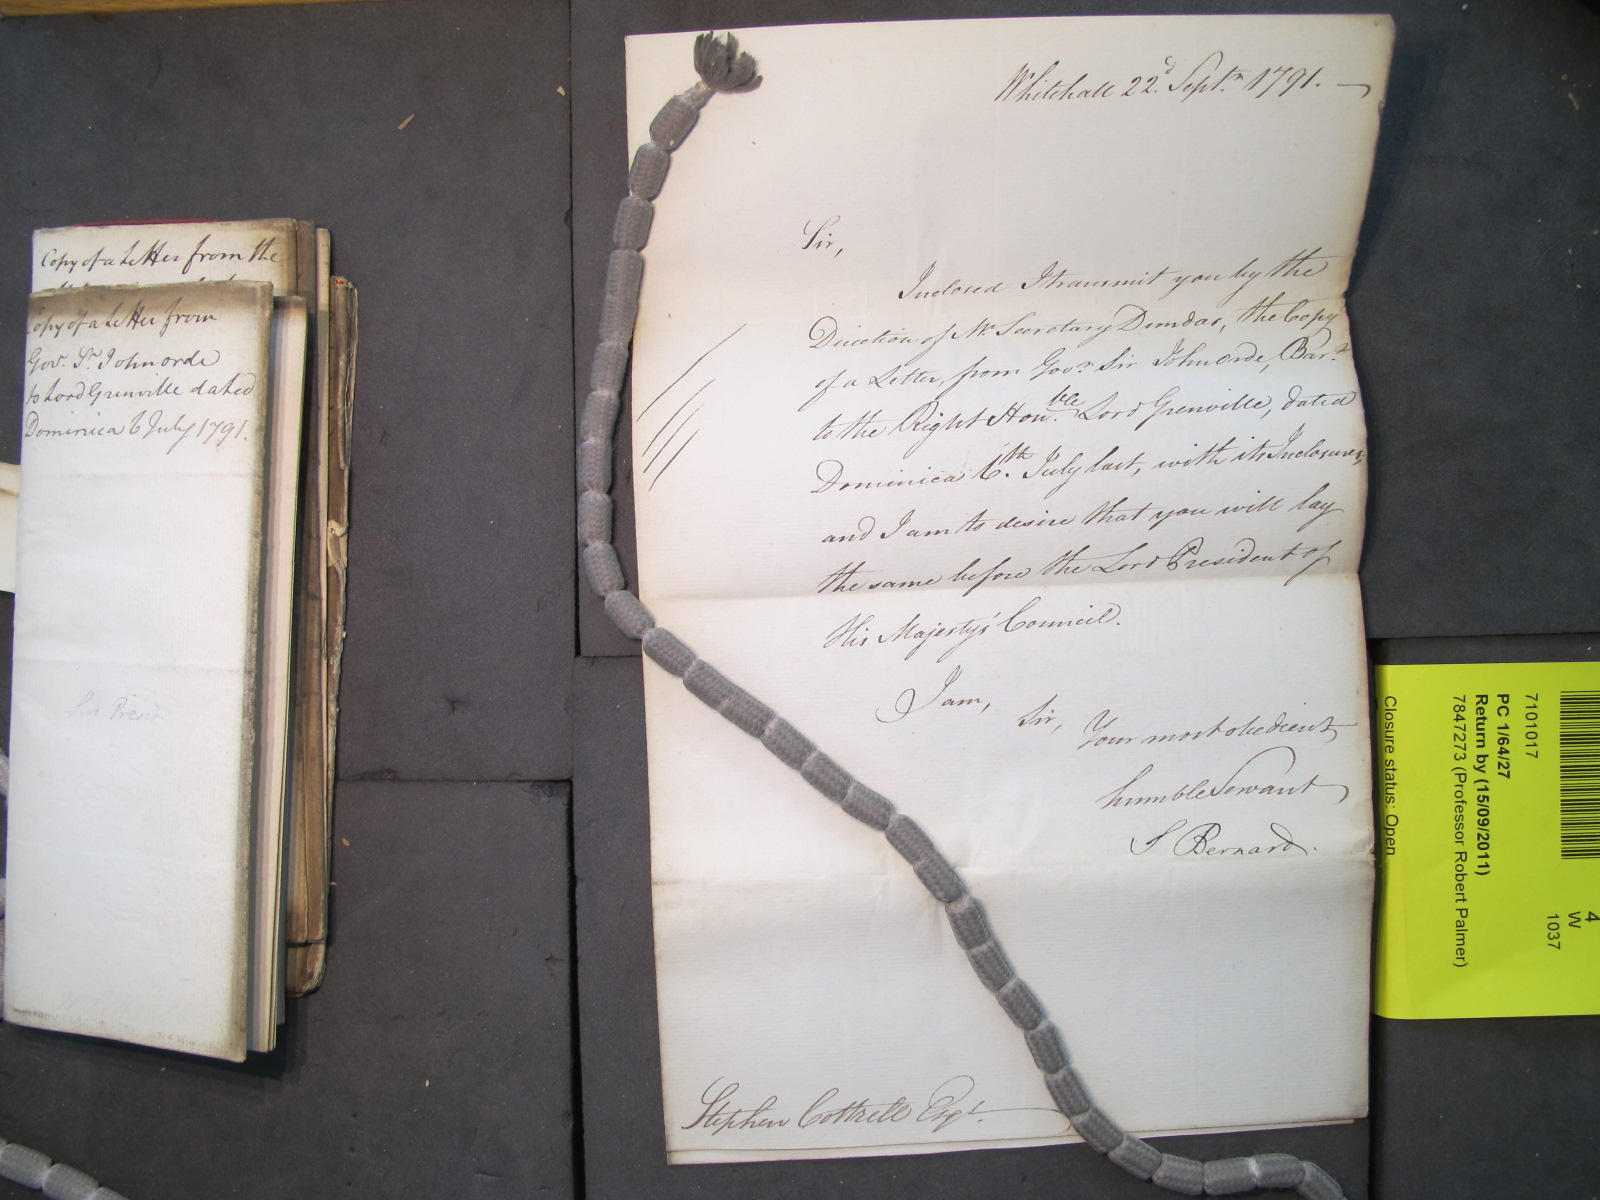 Copy of a Letter from the
Copy of a Letter from
Govr. Sr. John Orde
to Lord Grenville dated
Dominica 6 July 1791.
Lord Presidt.
Whitehall 22d. Septr. 1791.
Sir,
Inclosed I transmit you by the
Direction of Mr. Secretary Dundas, the Copy
of a Letter, from Govr. Sir John Orde, Bart.
to the Right Honble. Lord Grenville, dated
Dominica 6th. July last, with its Inclosures,
and I am to desire that you will lay
the same before the Lord President of
His Majesty's Council.
I am,
Sir, Your most obedient
humble Servant
S Bernard.
Stephen Cottrell Esqr.
4
W
1037
7101017
PC 1/64/27
Return by (15/09/2011)
7847273 (Professor Robert Palmer)
Closure status: Open